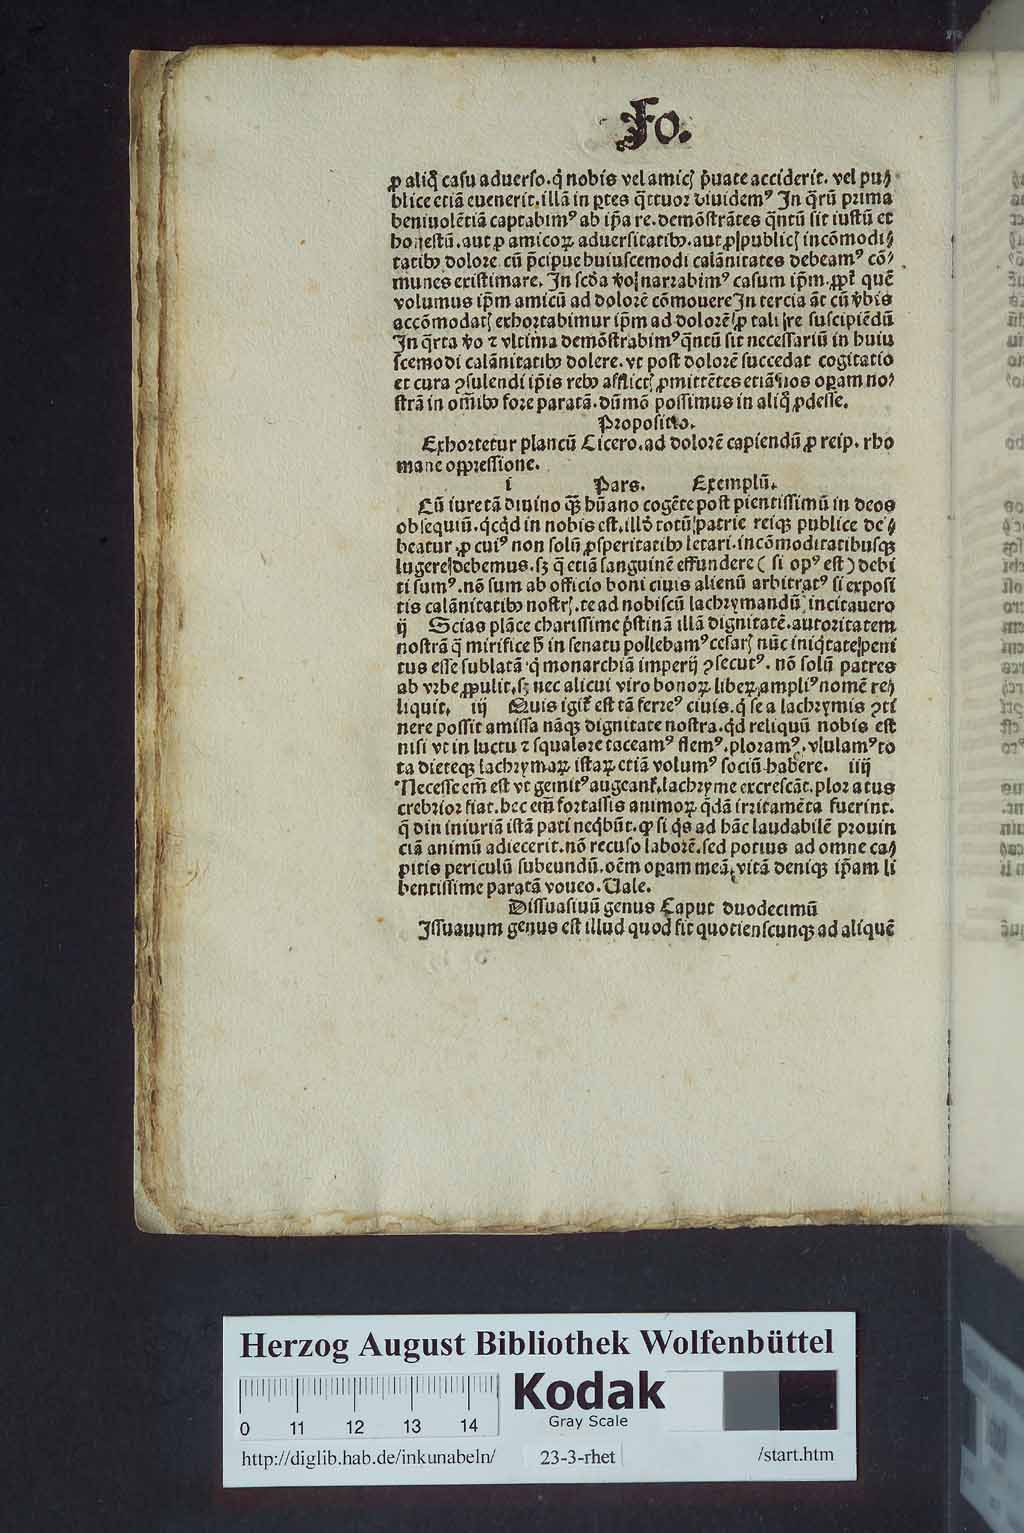 Fo.
ꝓ aliq̊ casu aduerso. q̇ nobis vel amicꝭ p̄uate acciderit. vel pu⸗
blice etiā euenerit. illā in ꝑtes q̄ttuor diuidemꝰ In q̄rū prima
beniuolētiā captabimꝰ ab ip̄a re. demōstrātes q̄ntū sit iustū et
honestū. aut ꝓ amicoꝝ aduersitatibꝰ. aut ꝓ publicꝭ incōmodi⸗
tatibꝰ dolore cū p̄cipue huiuscemodi calānitates debeamꝰ cō⸗
munes existimare. In scd̄a v̊o narrabimꝰ casum ip̄m. ꝓpt̄ quē
volumus ip̄m amicū ad dolorē cōmouere In tercia āt cū v̄bis
accōmodatꝭ exhortabimur ip̄m ad dolorē ꝓ tali re suscipiēdū
In q̄rta v̊o ⁊ vltima demōstrabimꝰ q̄ntū sit necessariū in huiu
scemodi calānitatibꝰ dolere. vt post dolorē succedat cogitatio
et cura ꝯsulendi ip̄is rebꝰ afflictꝭ ꝓmittētes etiā nos oꝑam no⸗
strā in om̄ibꝰ fore paratā. dūmō possimus in aliq̊ ꝓdesse.
Propositio.
Exhortetur plancū Cicero. ad dolorē capiendū ꝓ reip. rho
mane oppressione.
i Pars. Exemplū.
Cū iure tā diuino qꝫ hūano cogēte post pientissimū in deos
obsequiū. q̇cq̇d in nobis est. illd̓ totū patrie reiqꝫ publice de⸗
beatur. ꝓ cuiꝰ non solū ꝓsperitatibꝰ letari. incōmoditatibusqꝫ
lugere debemus. sꝫ q̄ etiā sanguinē effundere ( si opꝰ est ) debi
ti sumꝰ. nō sum ab officio boni ciuis alienū arbitratꝰ si exposi
tis calānitatibꝰ nostrꝭ. te ad nobiscū lachrymandū incitauero
ij Scias plāce charissime p̄stinā illā dignitatē. autoritatem
nostrā q̄ mirifice h̄ in senatu pollebamꝰ cesarꝭ nūc iniq̇tate peni
tus esse sublatā q̇ monarchiā imperij ꝯsecutꝰ. nō solū patres
ab vrbe ꝓpulit. sꝫ nec alicui viro bonoꝝ libeꝝ ampliꝰ nomē re⸗
liquit. iij Quis igit̄ est tā ferreꝰ ciuis. q̇ se a lachrymis ꝯti
nere possit amissa nāqꝫ dignitate nostra. q̇d reliquū nobis est
nisi vt in luctu ⁊ squalore taceamꝰ flemꝰ. ploramꝰ. vlulamꝰ to
ta dieteqꝫ lachrymaꝝ istaꝝ etiā volumꝰ sociū habere. iiij
Necesse em̄ est vt gemitꝰ augeant̄. lachryme excrescāt. ploratus
crebrior fiat. hec em̄ fortassis animoꝝ q̇dā irritamēta fuerint.
q̄ diu iniuriā istā pati neq̇būt. ꝙ si q̇s ad hāc laudabilē prouin
ciā animū adiecerit. nō recuso laborē. sed potius ad omne ca⸗
pitis periculū subeundū. oēm oꝑam meā, vitā deniqꝫ ip̄am li
bentissime paratā voueo. Vale.
Dissuasiuū genus Caput duodecimū
Issuauum genus est illud quod fit quotienscunqꝫ ad aliquē
Herzog August Bibliothek Wolfenbüttel
0 11 12 13 14
Kodak
Gray Scale
http://diglib.hab.de/inkunabeln/ 23-3-rhet /start.htm